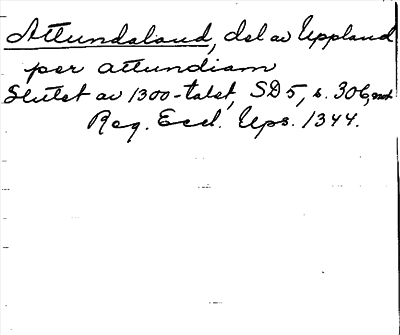 Attundaland, del av Uppland
per attundiam
Slutet av 1300-talet, SD 5, s. 306, not
Reg. Eccl. Ups. 1344.